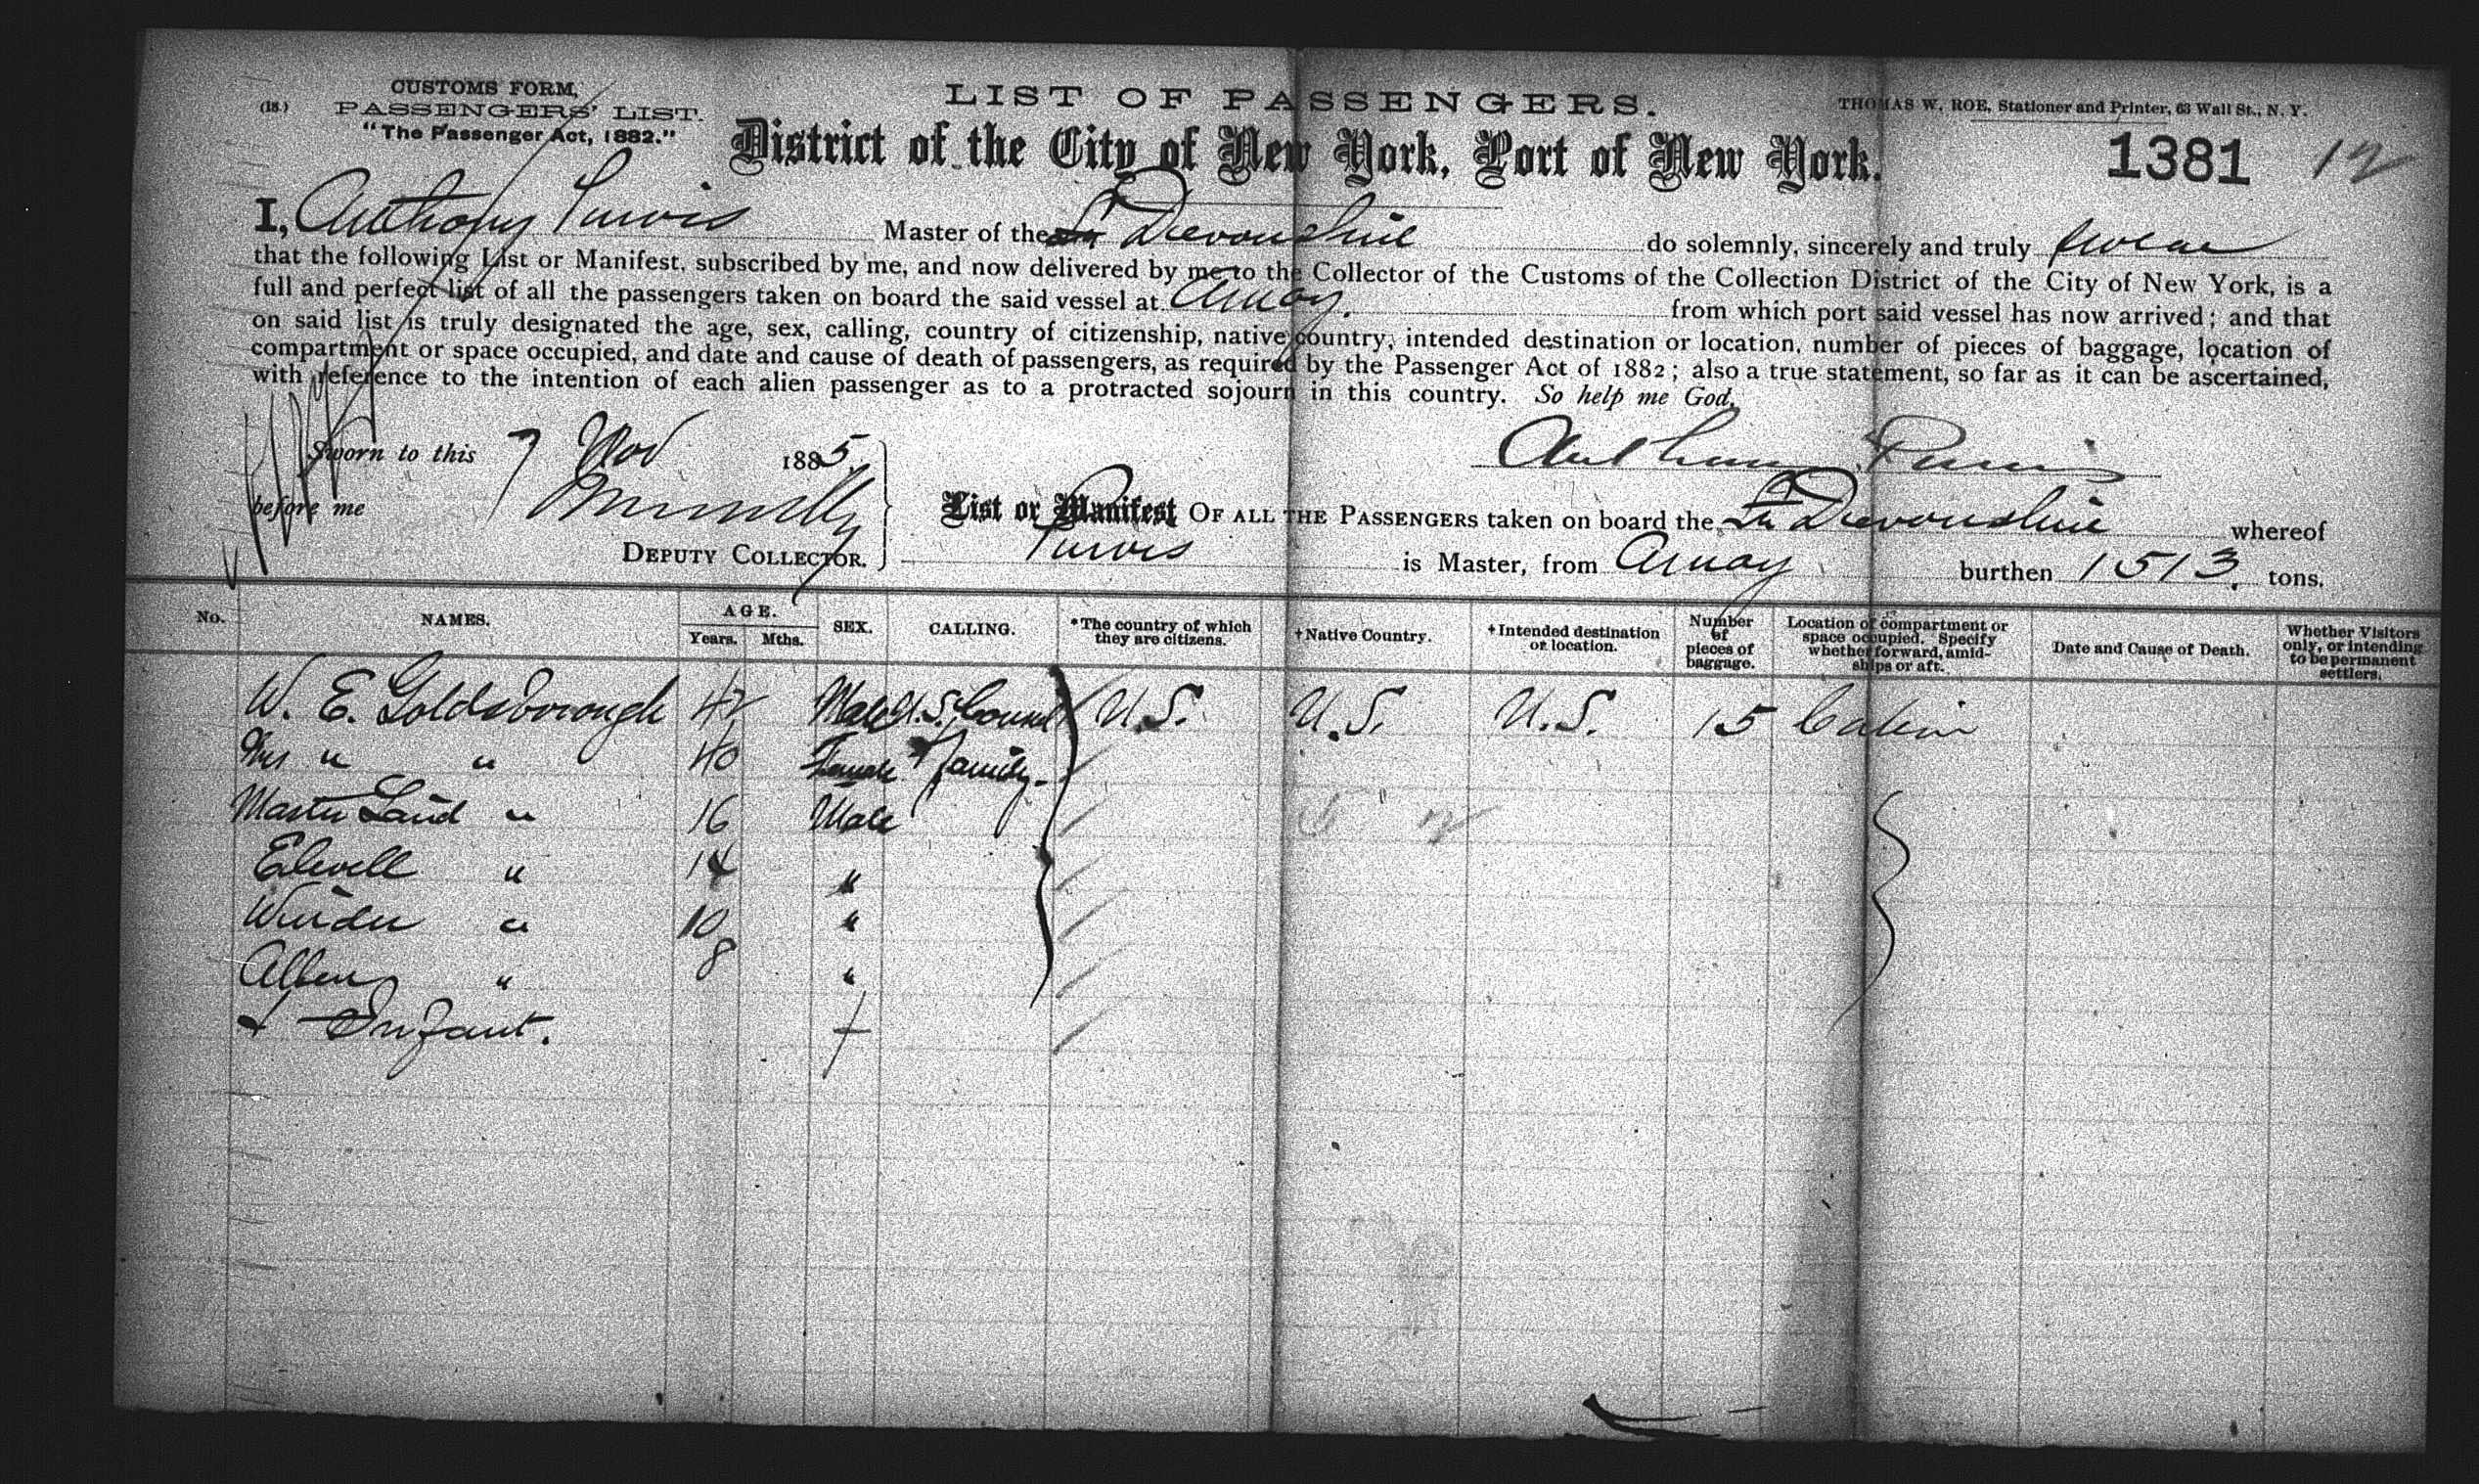 CUSTOMS FORM,
(18.) PASSENGERS' LIST.
"The Passenger Act, 1882."
LIST OF PASSENGERS.
THOMAS W. ROE, Stationer and Printer, 63 Wall St., N. Y.
District of the City of New York, Port of New York.
1381 12
I, Anthony Purvis Master of the Devonshire do solemnly, sincerely and truly swear
that the following List or Manifest, subscribed by me, and now delivered by me to the Collector of the Customs of the Collection District of the City of New York, is a
full and perfect list of all the passengers taken on board the said vessel at Amoy. from which port said vessel has now arrived; and that
on said list is truly designated the age, sex, calling, country of citizenship, native country, intended destination or location, number of pieces of baggage, location of
compartment or space occupied, and date and cause of death of passengers, as required by the Passenger Act of 1882; also a true statement, so far as it can be ascertained,
with reference to the intention of each alien passenger as to a protracted sojourn in this country. So help me God.
Sworn to this 7 Nov 1885
Anthony Purvis
before me
DEPUTY COLLECTOR.
List or Manifest OF ALL THE PASSENGERS taken on board the Devonshire whereof
Purvis is Master, from Amoy burthen 1513 tons.
No. NAMES. AGE. Years. Mths. SEX. CALLING. *The country of which they are citizens. +Native Country. +Intended destination or location. Number of pieces of baggage. Location of compartment or space occupied. Specify whether forward, amidships or aft. Date and Cause of Death. Whether Visitors only, or intending to be permanent settlers.
W. E. Goldsborough 42 Male U.S. Consul U.S. U.S. U.S. 15 Cabin
Mrs " " 40 Female & family.
Master Laird " 16 Male
Elwell " 14 "
Winder " 10 "
Allen " 8 "
& Infant.